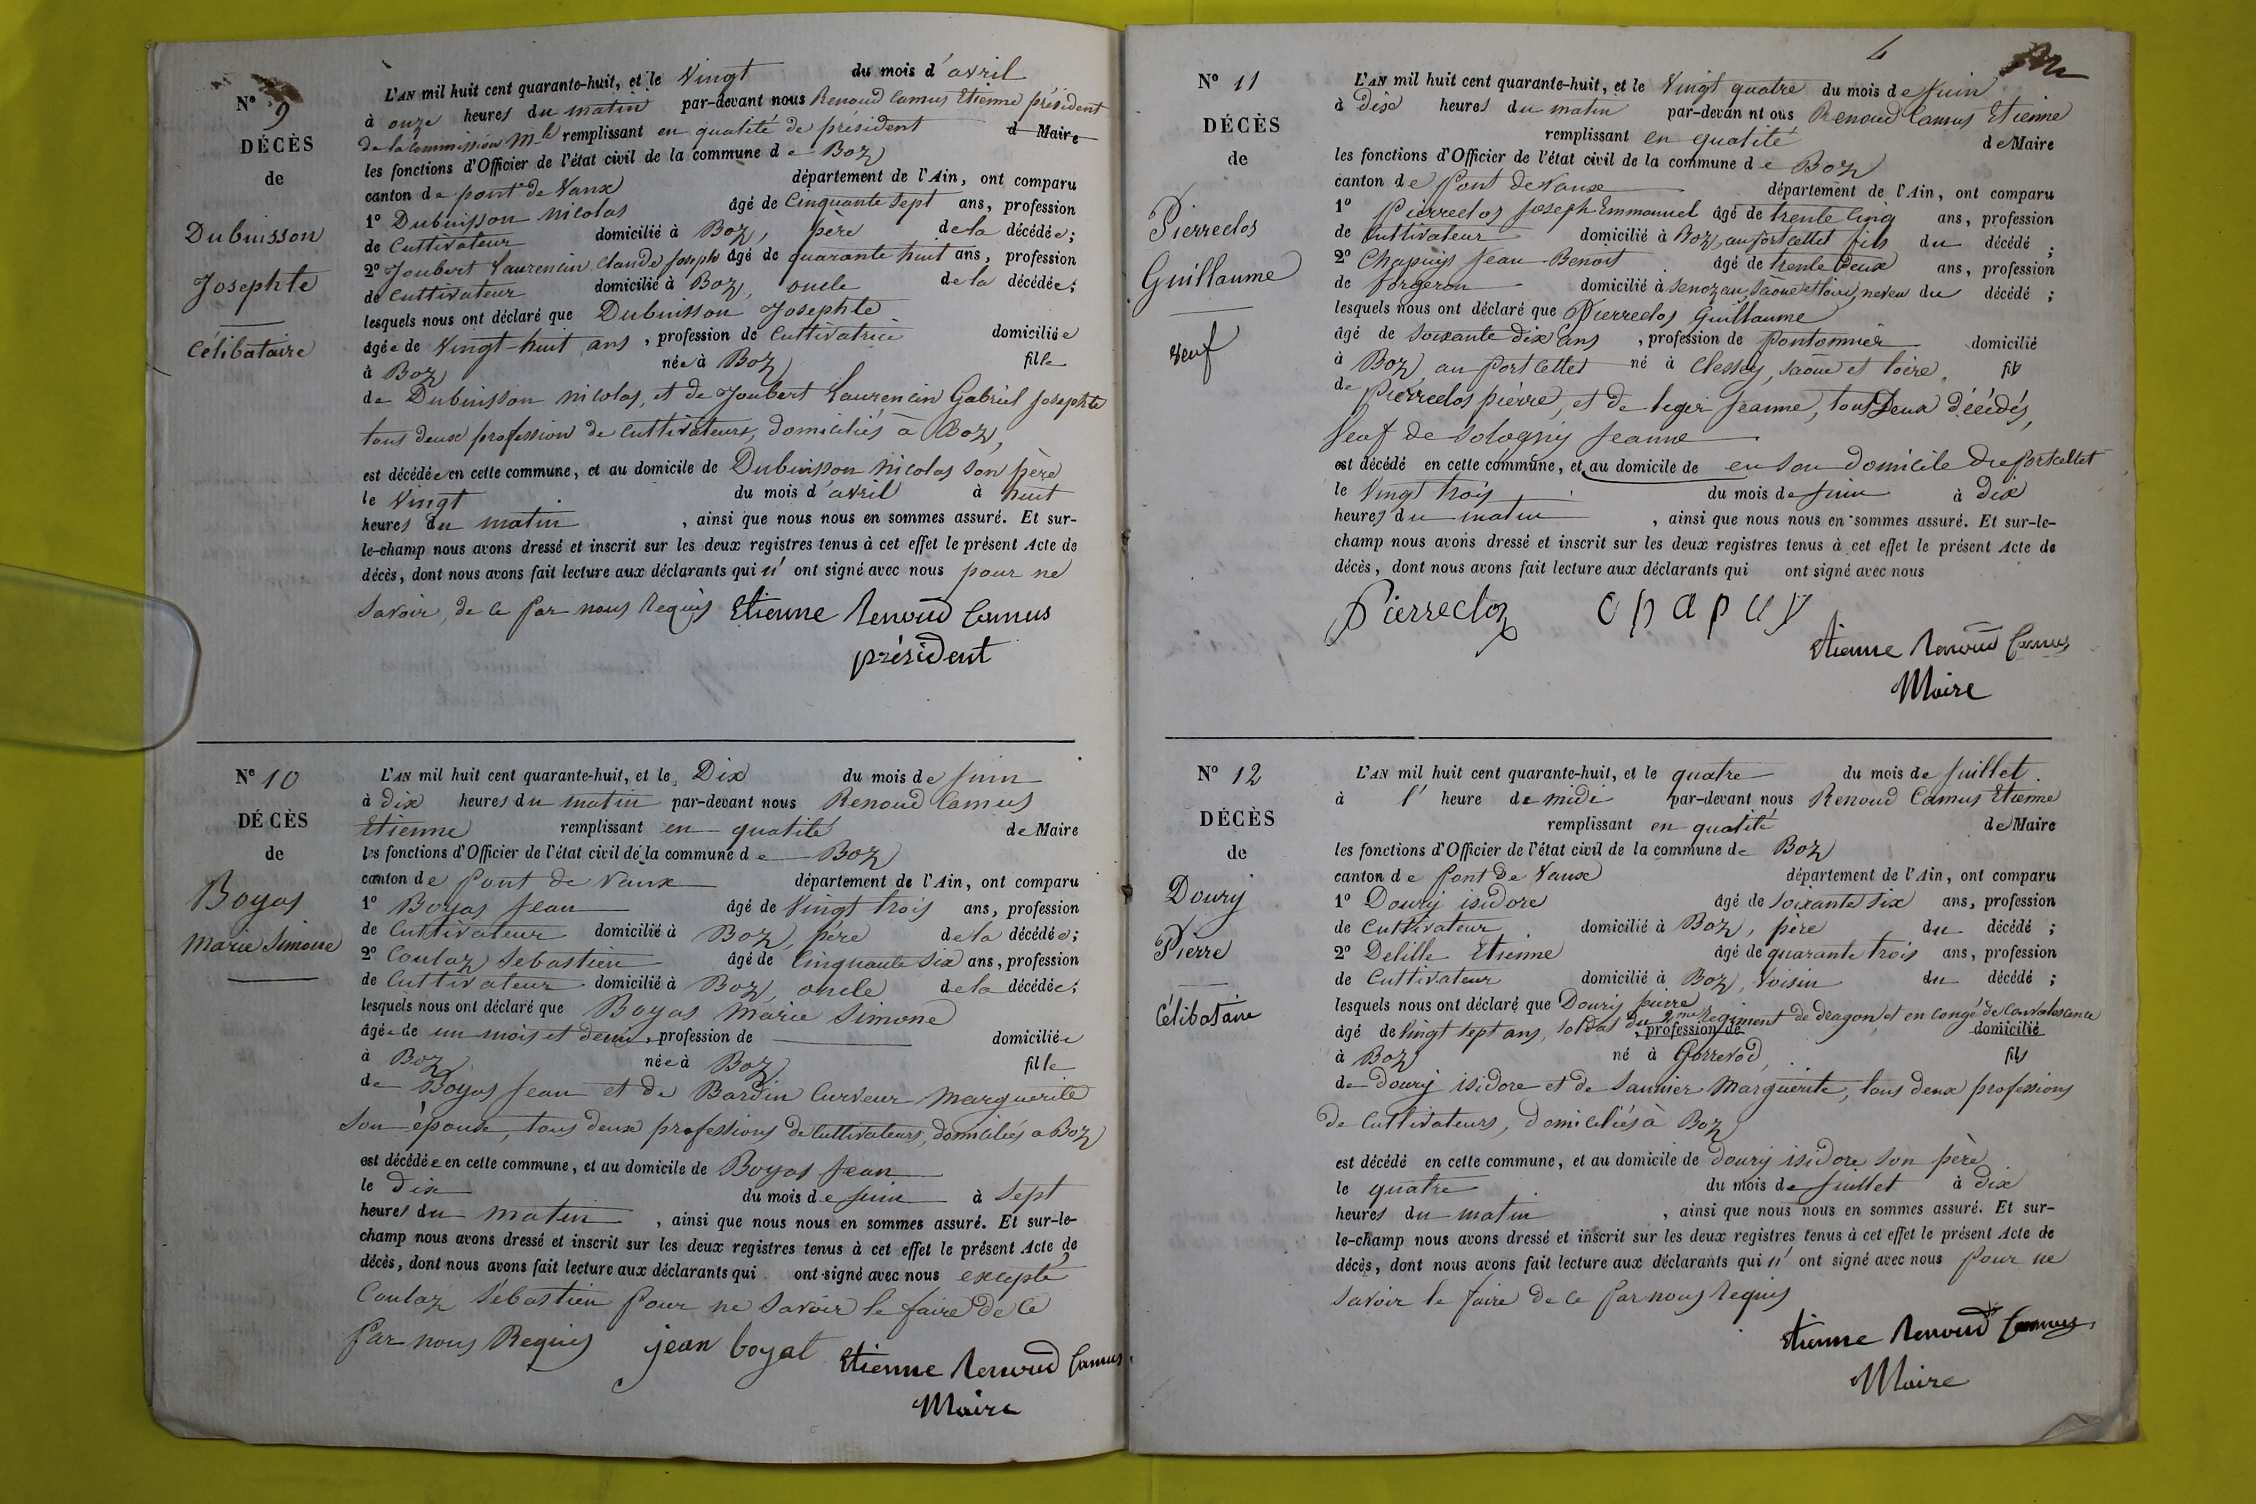 N° 9
DÉCÈS
de
Dubuisson
Josephte
Célibataire
L'AN mil huit cent quarante-huit, et le Vingt du mois d'avril
à onze heures du matin par-devant nous Renoud Camus Etienne président
de la Commission Mle remplissant en qualité de président d Maire
les fonctions d'Officier de l'état civil de la commune de Boz
canton de pont de Vaux département de l'Ain, ont comparu
1° Dubuisson nicolas âgé de Cinquante Sept ans, profession
de Cultivateur domicilié à Boz, père de la décédée;
2° Joubert Laurencin Claude Joseph âgé de quarante huit ans, profession
de Cultivateur domicilié à Boz, oncle de la décédée;
lesquels nous ont déclaré que Dubuisson Josephte
âgée de Vingt-huit ans, profession de Cultivatrice domiciliée
à Boz née à Boz fille
de Dubuisson nicolas, et de Joubert Laurencin Gabriel Josephte
tous deux profession de Cultivateurs, domiciliés à Boz,
est décédée en cette commune, et au domicile de Dubuisson Nicolas son père
le Vingt du mois d'avril à huit
heures du matin, ainsi que nous nous en sommes assuré. Et sur-
le-champ nous avons dressé et inscrit sur les deux registres tenus à cet effet le présent Acte de
décès, dont nous avons fait lecture aux déclarants qui n' ont signé avec nous pour ne
Savoir, de ce par nous Requis Etienne Renoud Camus
président
N° 10
DÉCÈS
de
Boyas
Marie Simone
L'AN mil huit cent quarante-huit, et le Dix du mois de Juin
à dix heures du matin par-devant nous Renoud Camus
Etienne remplissant en qualité de Maire
les fonctions d'Officier de l'état civil de la commune de Boz
canton de Pont de Vaux département de l'Ain, ont comparu
1° Boyas Jean âgé de Vingt trois ans, profession
de Cultivateur domicilié à Boz, père de la décédée;
2° Coulaz Sebastien âgé de Cinquante Six ans, profession
de Cultivateur domicilié à Boz, oncle de la décédée;
lesquels nous ont déclaré que Boyas Marie Simone
âgée de un mois et demi, profession de domiciliée
à Boz née à Boz fille
de Boyas Jean et de Bardin Curveur Marguerite
Son épouse, tous deux professions de Cultivateurs, domiciliés a Boz
est décédée en cette commune, et au domicile de Boyas Jean
le dix du mois de Juin à Sept
heures du matin, ainsi que nous nous en sommes assuré. Et sur-le-
champ nous avons dressé et inscrit sur les deux registres tenus à cet effet le présent Acte de
décès, dont nous avons fait lecture aux déclarants qui ont signé avec nous excepté
Coulaz Sébastien pour ne Savoir le faire de Ce
par nous Requis jean boyat Etienne Renoud Camus
Maire
4
N° 11
DÉCÈS
de
Pierreclos
Guillaume
veuf
L'AN mil huit cent quarante-huit, et le Vingt quatre du mois de Juin
à dix heures du matin par-devan nt ous Renoud Camus Etienne
remplissant en qualité de Maire
les fonctions d'Officier de l'état civil de la commune de Boz
canton de Pont de Vaux département de l'Ain, ont comparu
1° Pierreclos Joseph Emmanuel âgé de trente Cinq ans, profession
de Cultivateur domicilié à Boz, au port cellet fils du décédé;
2° Chapuis Jean-Benoit âgé de trente Deux ans, profession
de forgeron domicilié à Senozan, Saône et Loire, neveu du décédé;
lesquels nous ont déclaré que Pierreclos Guillaume
âgé de Soixante dix ans, profession de pontonnier domicilié
à Boz au Port Cellet né à Clessey, Saône et Loire, fils
de Pierreclos pierre, et de leger Jeanne, tous Deux décédés,
Veuf de Sologny Jeanne
est décédé en cette commune, et au domicile de en Son domicile du Port cellet
le Vingt trois du mois de Juin à Dix
heures du matin, ainsi que nous nous en sommes assuré. Et sur-le-
champ nous avons dressé et inscrit sur les deux registres tenus à cet effet le présent Acte de
décès, dont nous avons fait lecture aux déclarants qui ont signé avec nous
Pierrecloz chapuy
Etienne Renoud Camus
Maire
N° 12
DÉCÈS
de
Doury
Pierre
Célibataire
L'AN mil huit cent quarante-huit, et le quatre du mois de Juillet.
à l' heure de midi par-devant nous Renoud Camus Etienne
remplissant en qualité de Maire
les fonctions d'Officier de l'état civil de la commune de Boz
canton de Pont de Vaux département de l'Ain, ont comparu
1° Doury isidore âgé de Soixante Six ans, profession
de Cultivateur domicilié à Boz, père du décédé;
2° Delille Etienne âgé de quarante trois ans, profession
de Cultivateur domicilié à Boz, Voisin du décédé;
lesquels nous ont déclaré que Doury pierre
âgé de Vingt Sept ans, Soldat du 2me Regiment de dragon, et en congé de Convalescence profession de domicilié
à Boz né à Gorrevod, fils
de doury isidore et de Saunier Marguerite, tous deux professions
de Cultivateurs, domiciliés à Boz
est décédé en cette commune, et au domicile de doury isidore Son père
le quatre du mois de Juillet à dix
heures du matin, ainsi que nous nous en sommes assuré. Et sur-
le-champ nous avons dressé et inscrit sur les deux registres tenus à cet effet le présent Acte de
décès, dont nous avons fait lecture aux déclarants qui n' ont signé avec nous Pour ne
Savoir le faire de Ce Par nous Requis
Etienne Renoud Camus
Maire